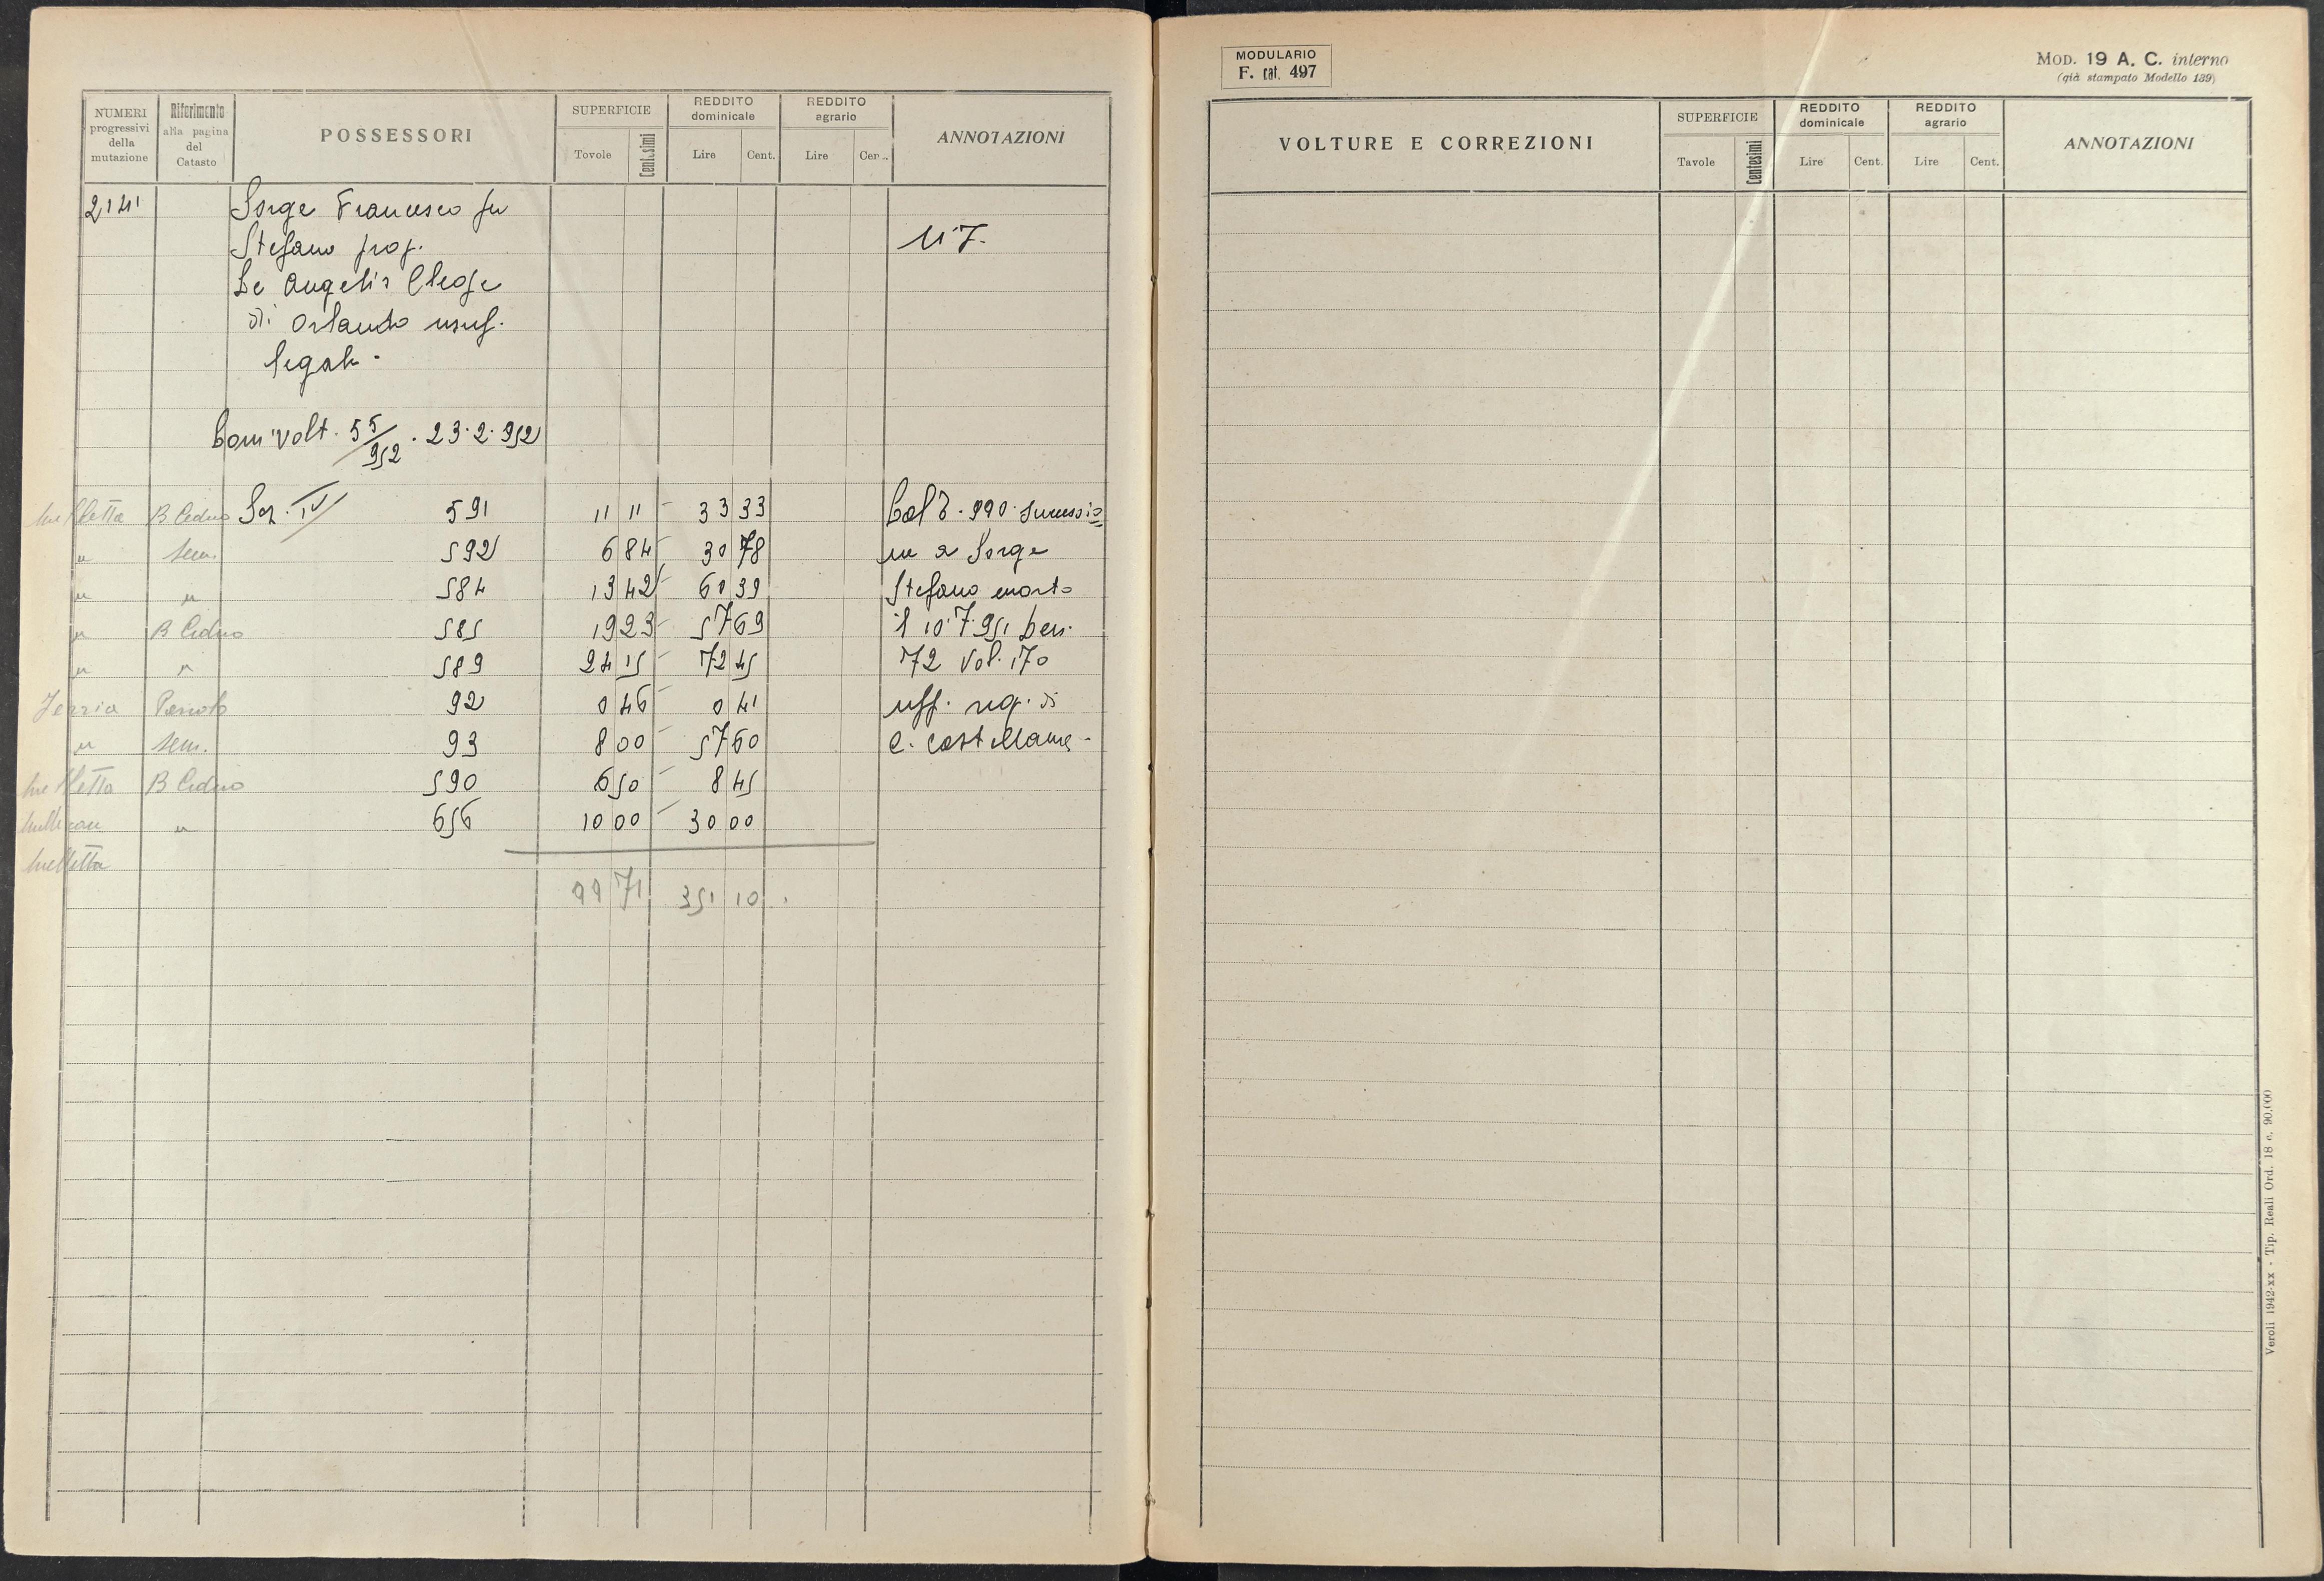 NUMERI progressivi della mutazione
Riferimento alla pagina del Catasto
POSSESSORI
SUPERFICIE Tovole Centesimi
REDDITO dominicale Lire Cent.
REDDITO agrario Lire Cen..
ANNOTAZIONI
2141 Sorge Francesco fu
Stefano prop. N. 7.
De Angelis
di Orlando usuf.
legale.
Com. Volt. 55/952. 23.2.952
B Ceduo Sez. IV 591 11 11 33 33 Col 3. 990. Successio
" Sem. 592 6 84 30 78 ne a Sorge
" " 584 13 42 60 39 Stefano morto
" B Ceduo 585 19 23 57 69 il 10.7.951 den.
" " 589 24 15 72 45 72 Vol. 170
92 0 46 0 41 uff. reg. di
" Sem. 93 8 00 57 60 C. Castellana.
B Ceduo 590 6 50 8 45
" 656 10 00 30 00
99 71 351 10.
MODULARIO
F. cat. 497
MOD. 19 A. C. interno
(già stampato Modello 139)
VOLTURE E CORREZIONI
SUPERFICIE Tavole Centesimi
REDDITO dominicale Lire Cent.
REDDITO agrario Lire Cent.
ANNOTAZIONI
Veroli 1942-XX - Tip. Reali Ord. 18 c. 90.000